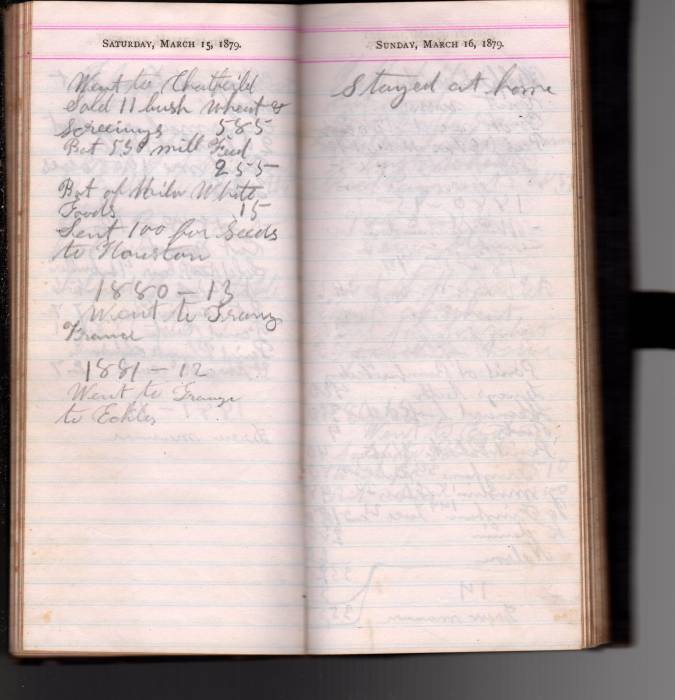 SATURDAY, MARCH 15, 1879.
Went to Chatfeild
Sold 11 bush wheat &
Screenings 585
Bot 550 mill Feed
255
Bot of Milo White
Foods 15
Sent 100 for Seeds
to Houston
1880 - 13
Went to
1881 - 12
Went to Grange
to Eckles
SUNDAY, MARCH 16, 1879.
Stayed at home